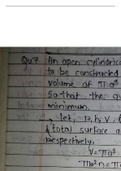 Qu7 An open cylindrica
to be constructed
volume of πa³
So that the qu
minimum.
, let, r, h, V, (
& total surface a
respectively.
V = πa³
πr²h = π